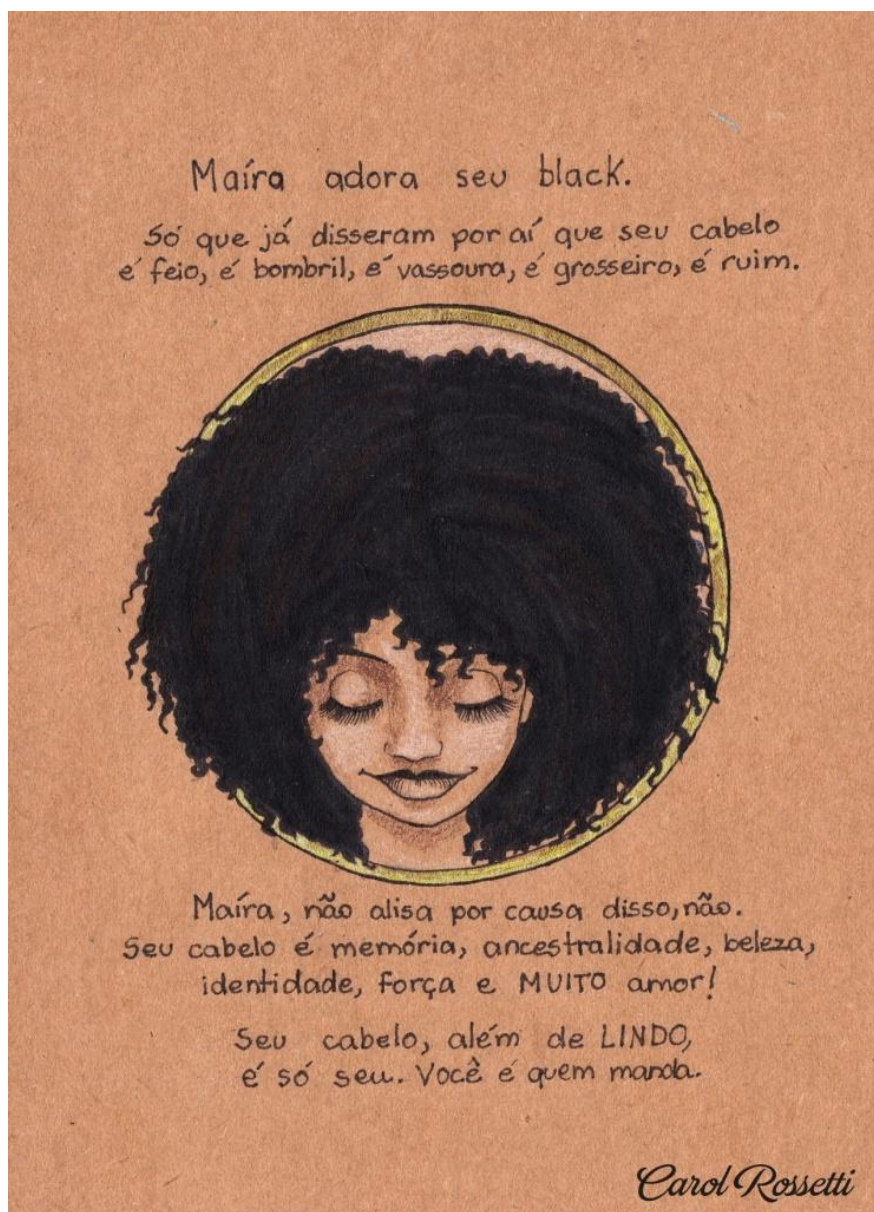 Maíra adora seu black.
Só que já disseram por aí que seu cabelo
é feio, é bombril, é vassoura, é grosseiro, é ruim.
Maíra, não alisa por causa disso, não.
Seu cabelo é memória, ancestralidade, beleza,
identidade, força e MUITO amor!
Seu cabelo, além de LINDO,
é só seu. Você é quem manda.
Carol Rossetti